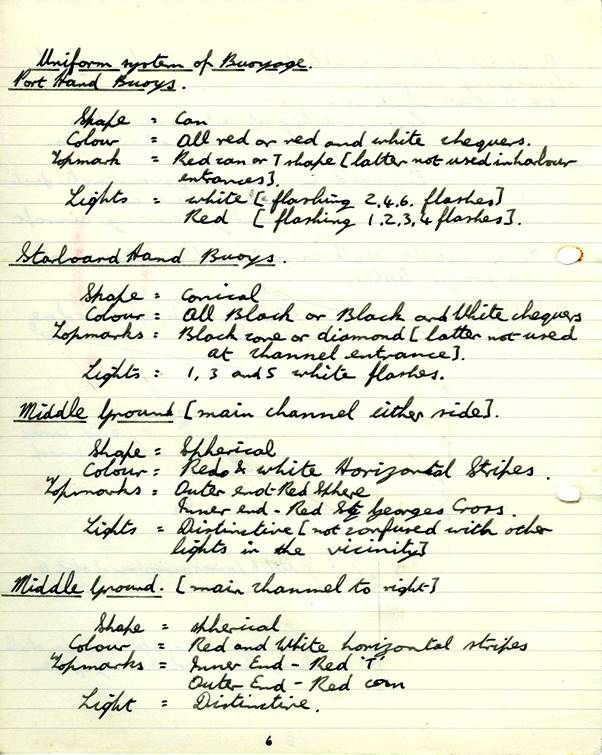 Uniform system of Buoyage.
Port Hand Buoys.
Shape = Can
Colour = All red or red and white chequers.
Topmark = Red can or T shape [latter not used in harbour
entrances].
Lights = white [flashing 2,4,6. flashes]
Red [flashing 1,2,3,4 flashes].
Starboard Hand Buoys.
Shape = Conical
Colour = All Black or Black and White chequers
Topmarks = Black cone or diamond [latter not used
at channel entrance].
Lights = 1, 3 and 5 white flashes.
Middle Ground [main channel either side].
Shape = Spherical
Colour = Red & white Horizontal Stripes.
Topmarks = Outer end-Red Sphere
Inner end - Red St Georges Cross.
Lights = Distinctive [not confused with other
lights in the vicinity]
Middle Ground. [main channel to right]
Shape = spherical
Colour = Red and White horizontal stripes
Topmarks = Inner End - Red 'T'
Outer End - Red
Light = Distinctive.
6